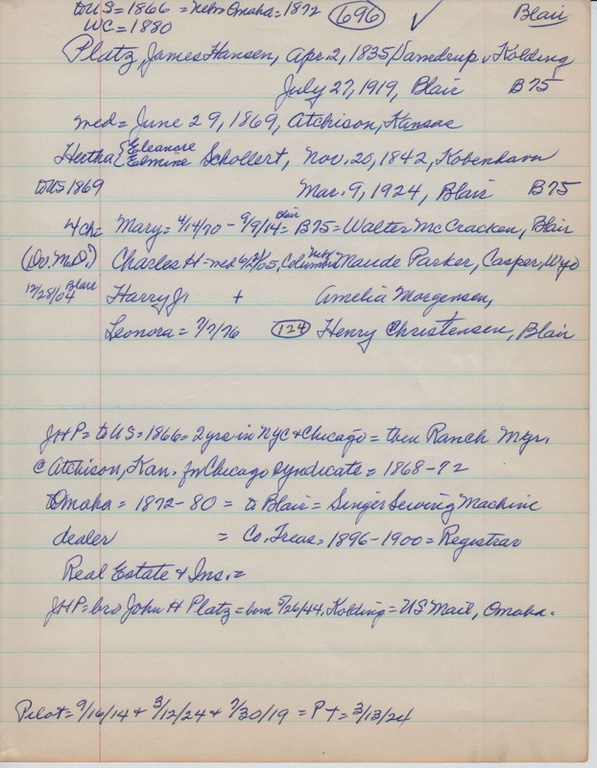 to US = 1866 = Nebr Omaha = 1872 696 ✓ Blair
WC = 1880
Platz, James Hansen, Apr. 2, 1835, Vamdrup v Kolding
July 27, 1919, Blair B75
med = June 29, 1869, Atchison, Kansas
Hertha { Eleanore
Elmine Schollert, Nov. 20, 1842, Kobenhavn
to US 1869 Mar. 9, 1924, Blair B75
4 ch = Mary = 4/14/70 - 9/9/14 = Blair B75 = Walter McCracken, Blair
(Dr. M.D.) Charles H = med 6/21/05, Columbus Nebr Maude Parker, Casper, Wyo
12/28/04 Blair Harry J, + Amelia Morgensen,
Leonora = 7/7/76 124 Henry Christensen, Blair
JHP = to US = 1866 = 2 yrs in NYC + Chicago = then Ranch Mgr.
@ Atchison, Kan. for Chicago Syndicate = 1868-72
to Omaha = 1872-80 = to Blair = Singer Sewing Machine
dealer = Co. Treas = 1896-1900 = Registrar
Real Estate + Ins. =
JHP = bro John H Platz = born 5/26/44, Kolding = US Mail, Omaha.
Pilot = 9/16/14 + 3/12/24 + 7/30/19 = P + = 3/13/24